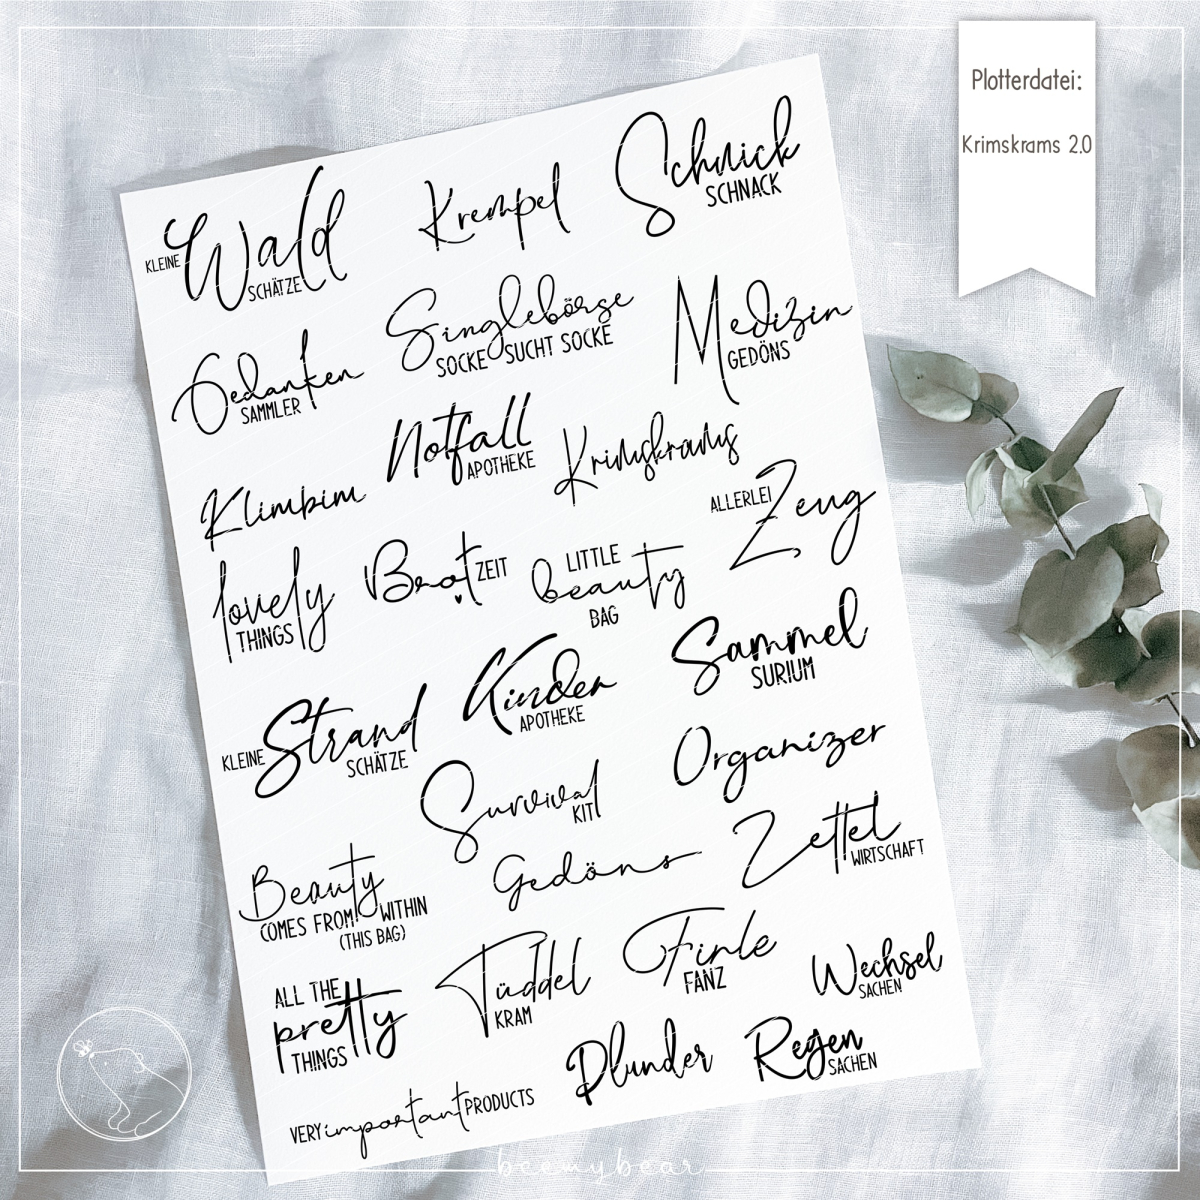 Plotterdatei:
Krimskrams 2.0
KLEINE Wald
SCHÄTZE
Krempel
Schnick
SCHNACK
Gedanken
SAMMLER
Singlebörse
SOCKE SUCHT SOCKE
Medizin
GEDÖNS
Klimbim
Notfall
APOTHEKE
Krimskrams
ALLERLEI Zeug
lovely
THINGS
Brot ZEIT
LITTLE
beauty
BAG
KLEINE Strand
SCHÄTZE
Kinder
APOTHEKE
Sammel
SURIUM
Survival
KIT
Organizer
Beauty
COMES FROM WITHIN
(THIS BAG)
Gedöns
Zettel
WIRTSCHAFT
ALL THE
pretty
THINGS
Tüddel
KRAM
Firle
FANZ
Wechsel
SACHEN
VERY important PRODUCTS
Plunder
Regen
SACHEN
beemybear